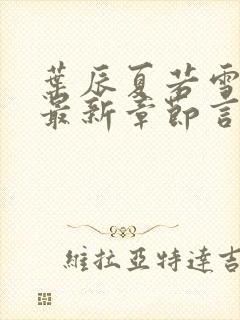 葉辰夏若雪
最新章節言
維拉亞特達吉